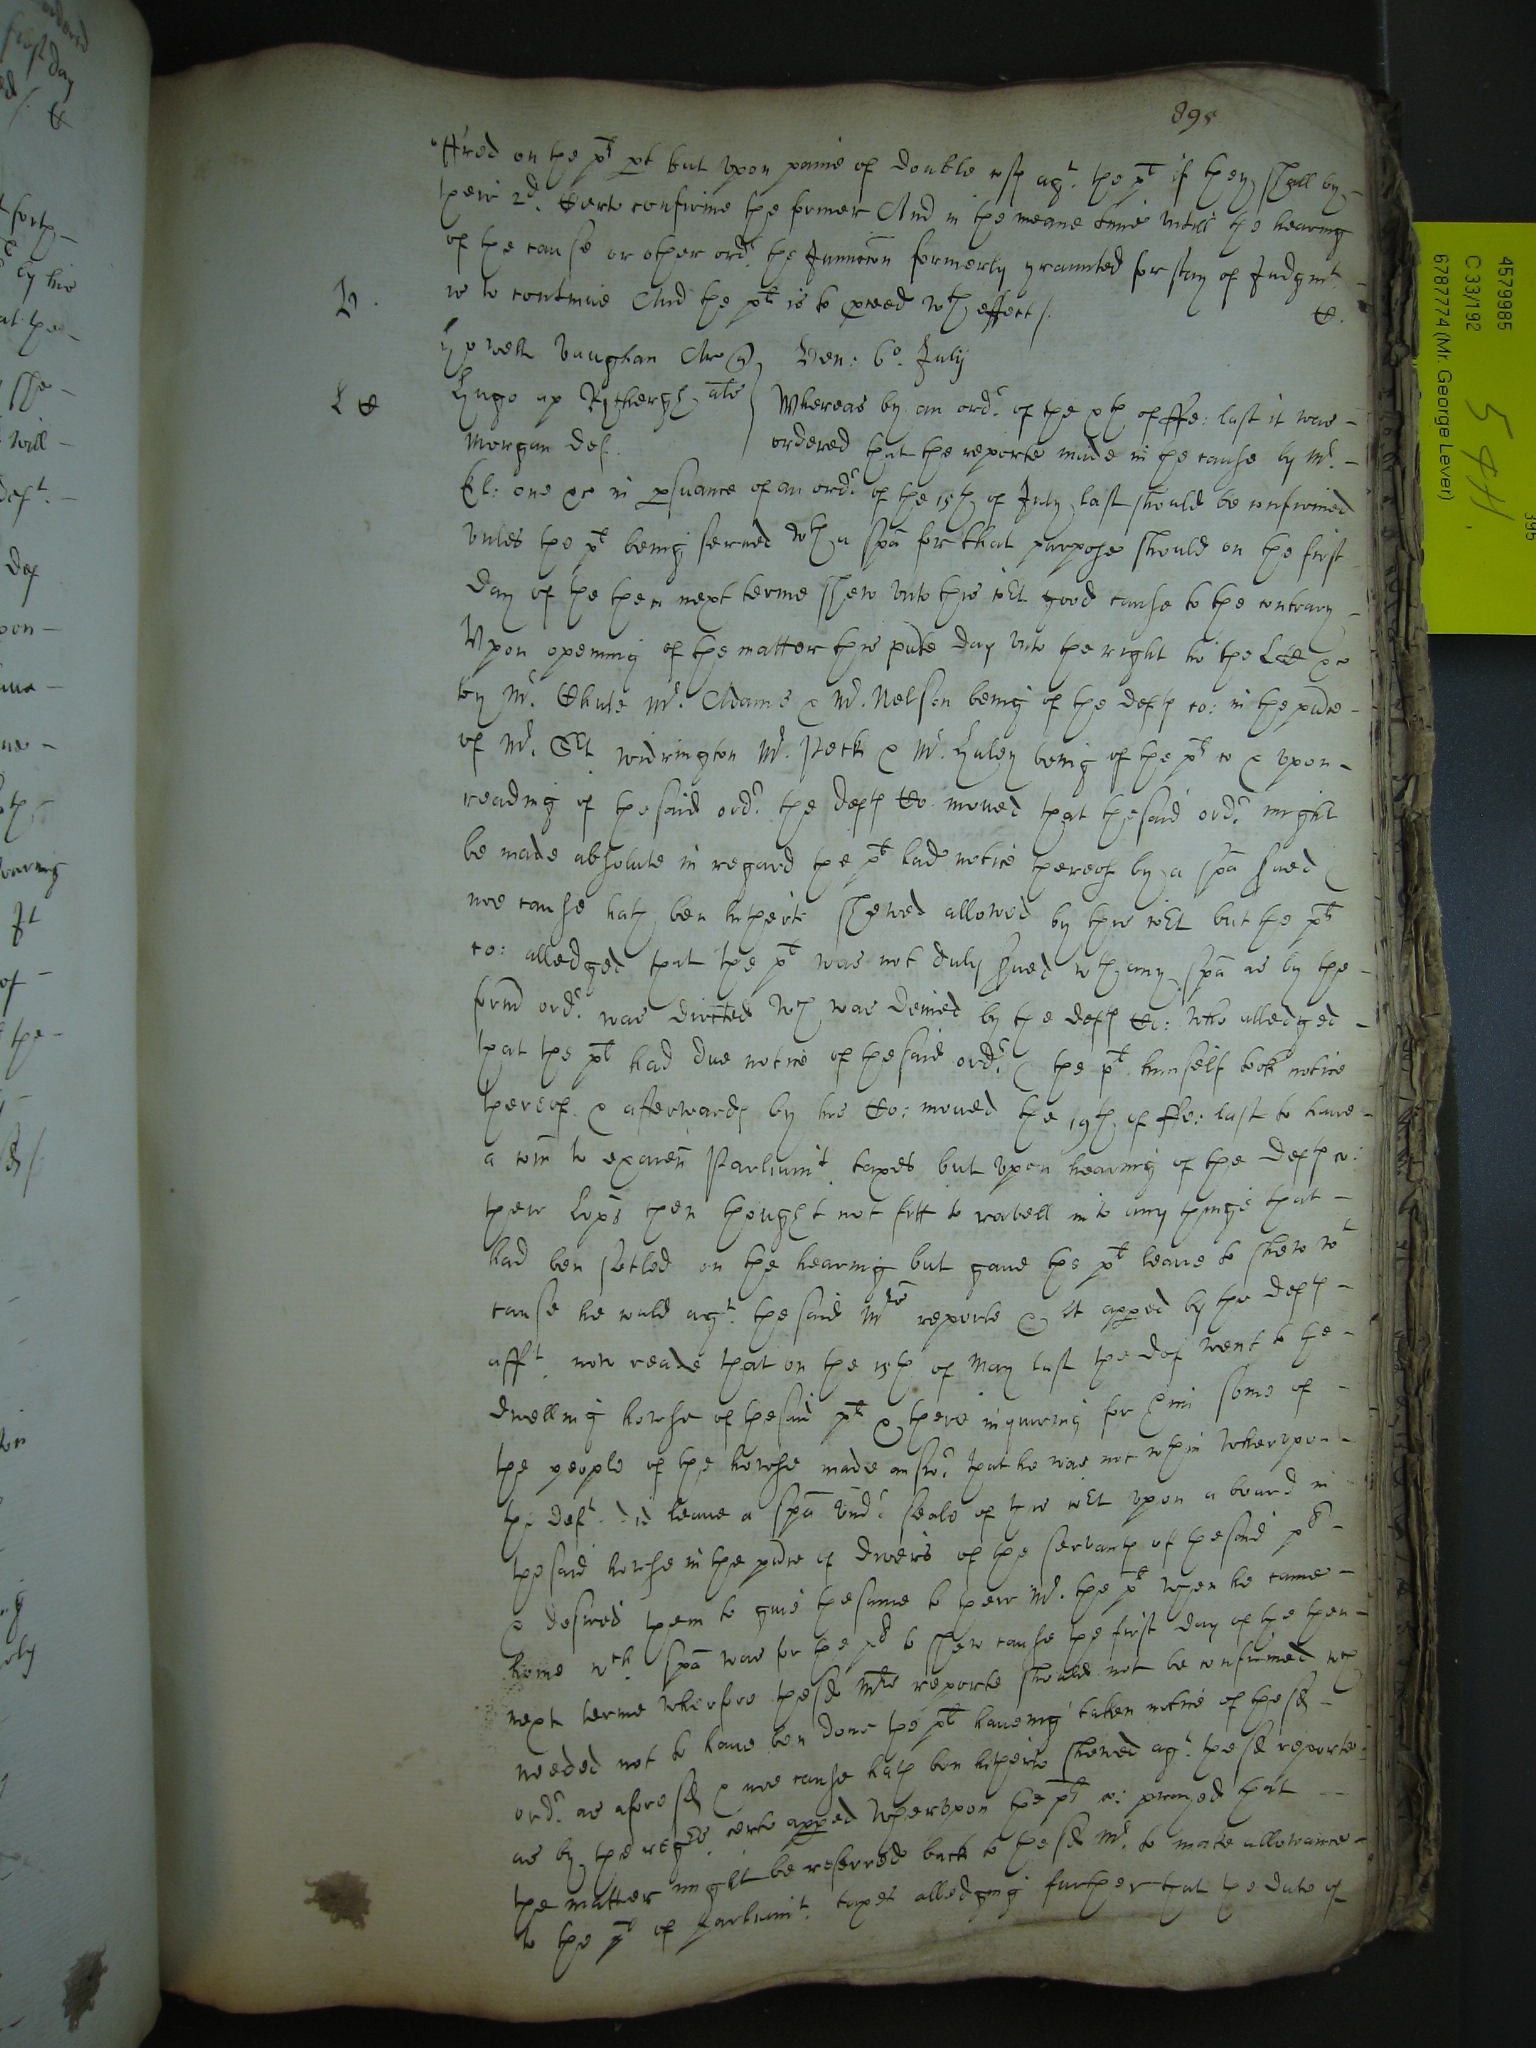 895
offred on the pt pt but vpon paine of double cost agt. the pt if they shall by
their 2d. Certe confirme the former And in the meane time vntill the hearing
of the cause or other ordr. the Iniuncon formerly graunted for stay of Iudgmt
is to continue And the pt is to pceed wth effect /. &.
H.
Howell Vaughan Ar Ven: 6o. July
L &
Hugo ap als Whereas by an ordr. of the xth of ffe: last it was
Morgan def ordered that the reporte made in the cause by Mr.
El: one &c in psuance of an ordr of the 15th of July last should be confirmed
vnles the pt being serued wth a spa for that purpose should on the first
day of the then next terme shew vnto this Cort good cause to the contrary
Vpon opening of the matter this pnte day vnto the right ho the &c
by Mr. Chute Mr. Adams & Mr. Nelson being of the defts co: in the pnce
of Mr. Widrington Mr. Peck & Mr. Haley being of the pts co & vpon
reading of the said ordr. the defts Co moued that the said ordr. might
be made absolute in regard the pt had notice thereof by a spa sued
noe cause hath ben hitherto shewed allowed by this Cort but the pts
co: alledged that the pt was not duly sued wth any spa as by the
form ordr. was directed wch was denied by the defts Co: who alledged
that the pt had due notice of the said ordr. & the pt himself took notice
thereof & afterwards by his Co: moued the 19th of ffe: last to haue
a com to examn Parliamt. taxes but vpon hearing of the defts co:
their Lops then thought not fitt to ravell into any things that
had ben setled on the hearing but gaue the pt leaue to shew wt
cause he would agt. the said Mrs reporte & it apped by the defts
afft. now reade that on the 15th of May last the def went to the
dwelling howse of the said pt & there inquiring for him some of
the people of the howse made answr. that he was not wthin Wherevpon
the deft. did leaue a spa vndr seale of this Cort vpon a board in
the said howse in the pnce of diuers of the servants of the said pt
& desired them to giue the same to their Mr. the pt when he came
home wch. spa was for the pt to shew cause the first day of the then
next terme wherefore the sd Mrs reporte should not be confirmed wch
needed not to haue ben done the pt haueing taken notice of the sd
ordr. as aforesd & noe cause hath ben hitherto shewed agt. the sd reporte
as by the regrs. certe apped Wherevpon the pts co: prayed that
the matter might be referred back to the sd Mr. to make allowance
to the pt of Parliamt. taxes alledging further that the date of
4579985
C 33/192
6787774 (Mr. George Lever)
395